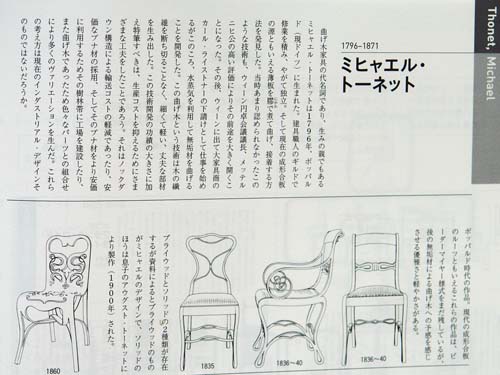 Thonet, Michael
1796-1871
ミヒャエル・
トーネット
曲げ木家具の代名詞であり、生みの親でもある
ミヒャエル・トーネットは1796年、ボッパル
ド(現ドイツ)に生まれた。建具職人のギルドで
修業を積み、やがて独立。そして現在の成形合板
の源ともいえる薄板を膠で煮て曲げ、接着する方
法を発見した。当時あまり認められなかったこの
ような技術も、ウィーン円卓会議議長、メッテル
ニヒ公の高い評価によりその前途を大きく開くこ
とになった。その後、ウィーンに出て大家具商の
カール・ライストナーの下請けとして仕事を始め
るがこのころ、水蒸気を利用して無垢材を曲げる
ことを開発した。この曲げ木という技術は木の繊
維を断ち切ることなく、細くて軽い、丈夫な部材
を生み出した。この技術開発の功績の大きさに加
え特筆すべきは、生産コストを抑えるためにさま
ざまな工夫をしたことであろう。それはノックダ
ウン構造による輸送コストの軽減であったり、安
価なブナ材の採用、そしてそのブナ材をより安価
に利用するためその樹林帯に工場を建設したり、
また曲げ木であったため色々なパーツとの組合せ
により多くのヴァリエーションを生んだ。これら
の考え方は現在のインダストリアル・デザインそ
のものではないだろうか。
ボッパルド時代の作品。現代の成形合板
のルーツともいえるこれらの作品は、ビ
ーダーマイヤー様式をまだ残しているが、
後の無垢材による曲げ木への予感を感じ
させる優雅さと軽やかさがある。
1836~40
1836~40
1835
プライウッドとソリッドの2種類が存在
するが資料によるとプライウッドのもの
がミヒャエルのデザインで、ソリッドの
ほうは息子のアウグスト・トーネットに
より製作(1900年)された。
1860